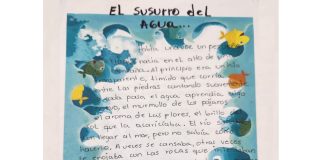 EL SUSURRO DEL
AGUA...
Había una vez un pequeño
en lo alto de
Al principio era un hilo
tímido que corría
entre las piedras cantando
cada paso, el agua aprendía algo
el murmullo de los pájaros
aroma de las flores, el brillo
sol que la acariciaba. El río
con llegar al mar, pero no sabía como
hacerlo. A veces se cansaba, otras veces
se enojaba con las rocas que